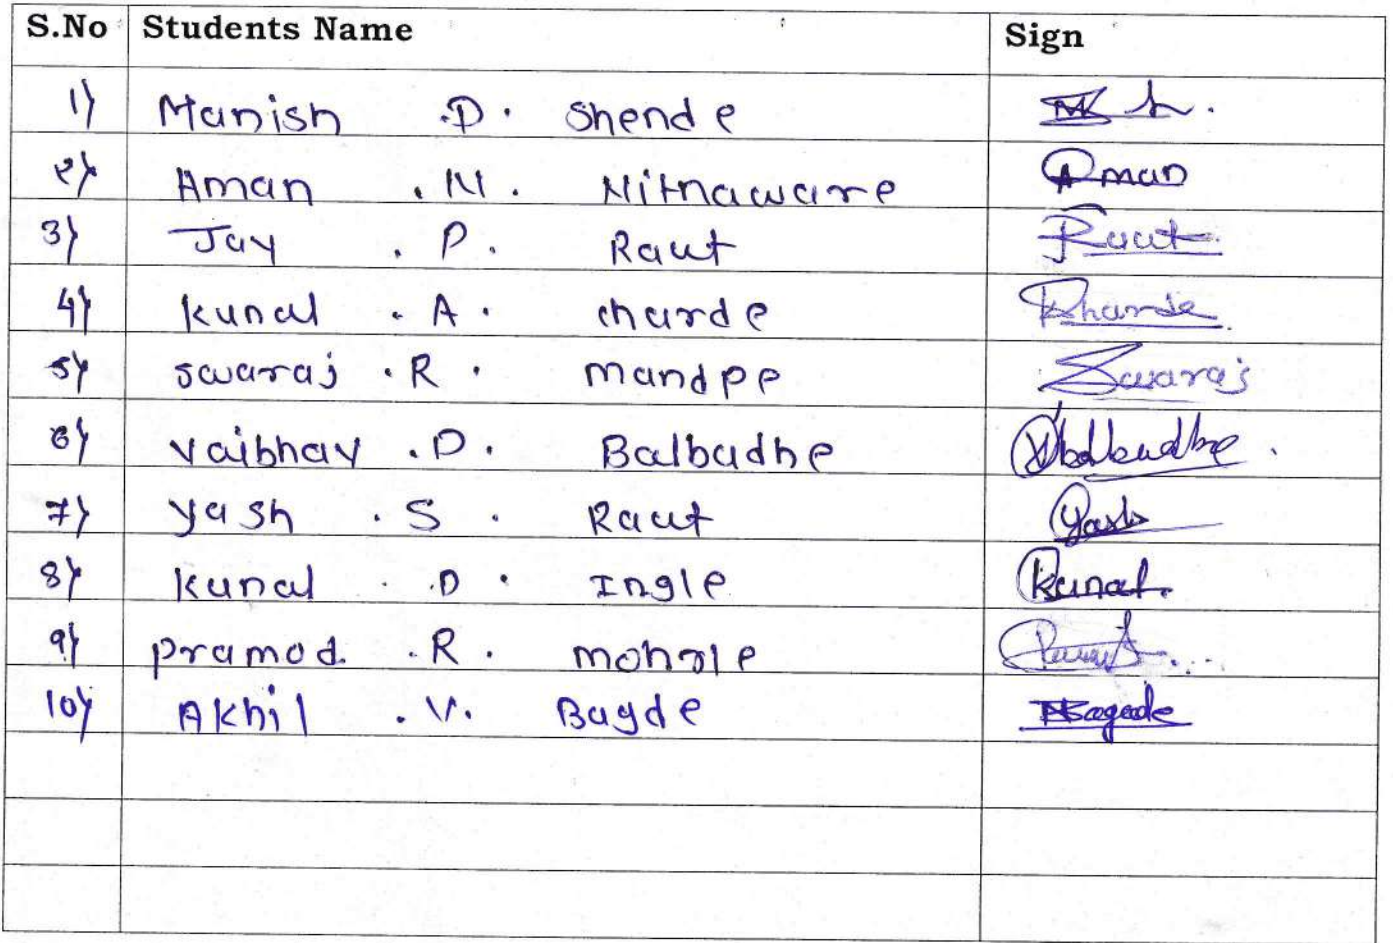 S.No Students Name Sign
1) Manish .D. Shende
2) Aman .N. Nitnaware Aman
3) Jay . P. Raut Raut
4) kunal . A. charde
5) swaraj .R. mandpe Swaraj
6) vaibhav .D. Balbudhe
7) yash .S. Raut Yash
8) kunal .D. Ingle kunal.
9) pramod .R. mohrle
10) Akhil .V. Bagde Bagade